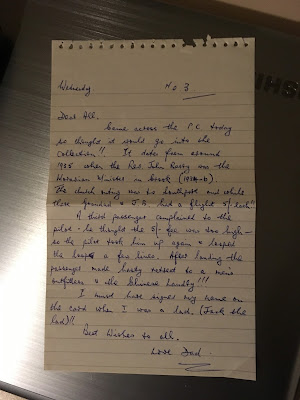 Wednesday No 3
Dear All.
Came across the P.C today
so thought it would go into the
collection!!. It dates from around
1935 when the Rev. John Rasby was the
Moravian Minister in
The church outing was to Southport and whilst
there Grandad & J.R. had a flight 5/- each!!
A third passenger complained to the
pilot - he thought the 5/- fee was too high -
so the pilot took him up again & looped
the loops a few times. After landing the
passenger made hasty retreat to a mens
outfitters & the Chinese Laundry!!!
I must have signed my name on
the card when I was a lad. (Jack the
lad)!!
Best Wishes to all.
Love Dad.